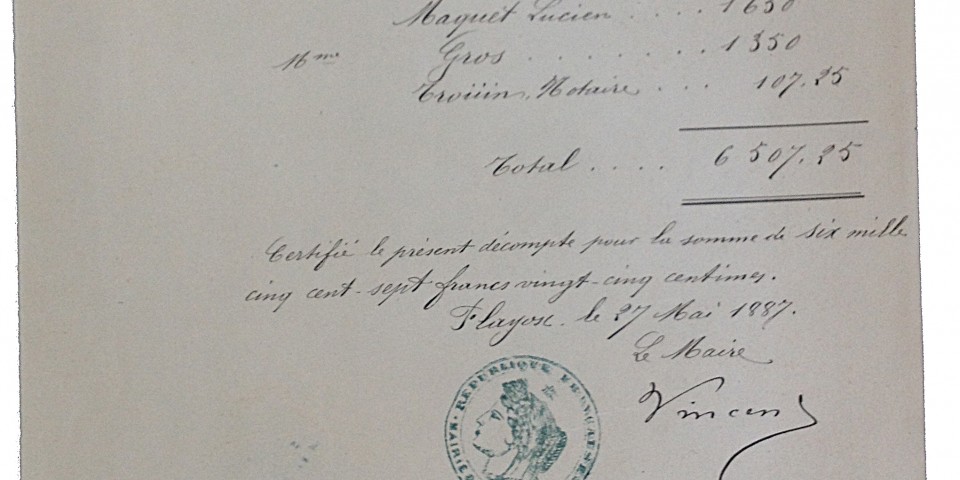 Maquet Lucien .... 1650
Mme Gros ........ 1350
Troüin, Notaire ... 107.25
Total .... 6 507.25
Certifié le présent décompte pour la somme de six mille
cinq cent-sept francs vingt-cinq centimes.
Flayosc. le 27 Mai 1887.
Le Maire
Vincent
MAIRIE
RÉPUBLIQUE FRANÇAISE